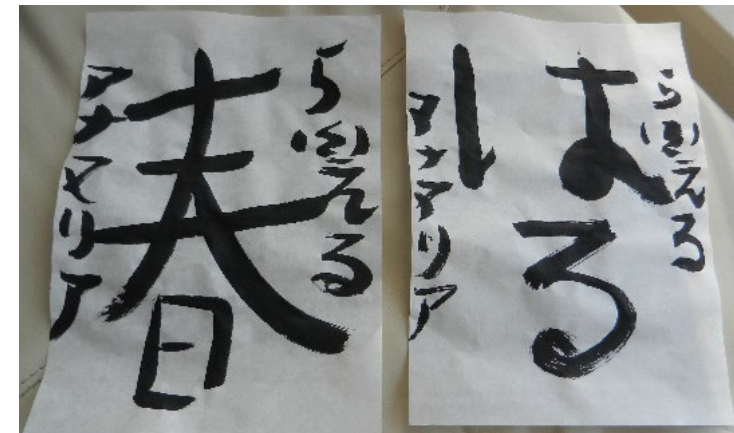 ら える
春
アナマリア
ら える
はる
アナマリア